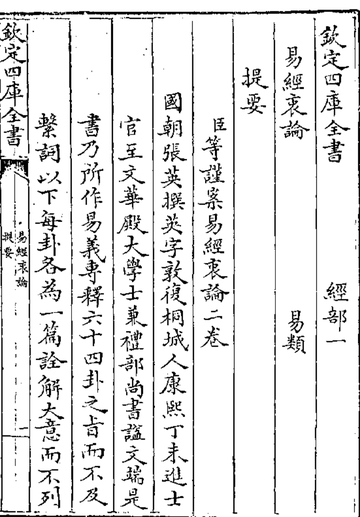 欽定四庫全書　經部一
易經衷論　易類
提要
臣等謹案易經衷論二卷
國朝張英撰英字敦復桐城人康熙丁未進士
官至文華殿大學士兼禮部尚書諡文端是
書乃所作易義專釋六十四卦之旨而不及
繫詞以下每卦各為一篇詮解大意而不列
欽定四庫全書
易經衷論
提要
一